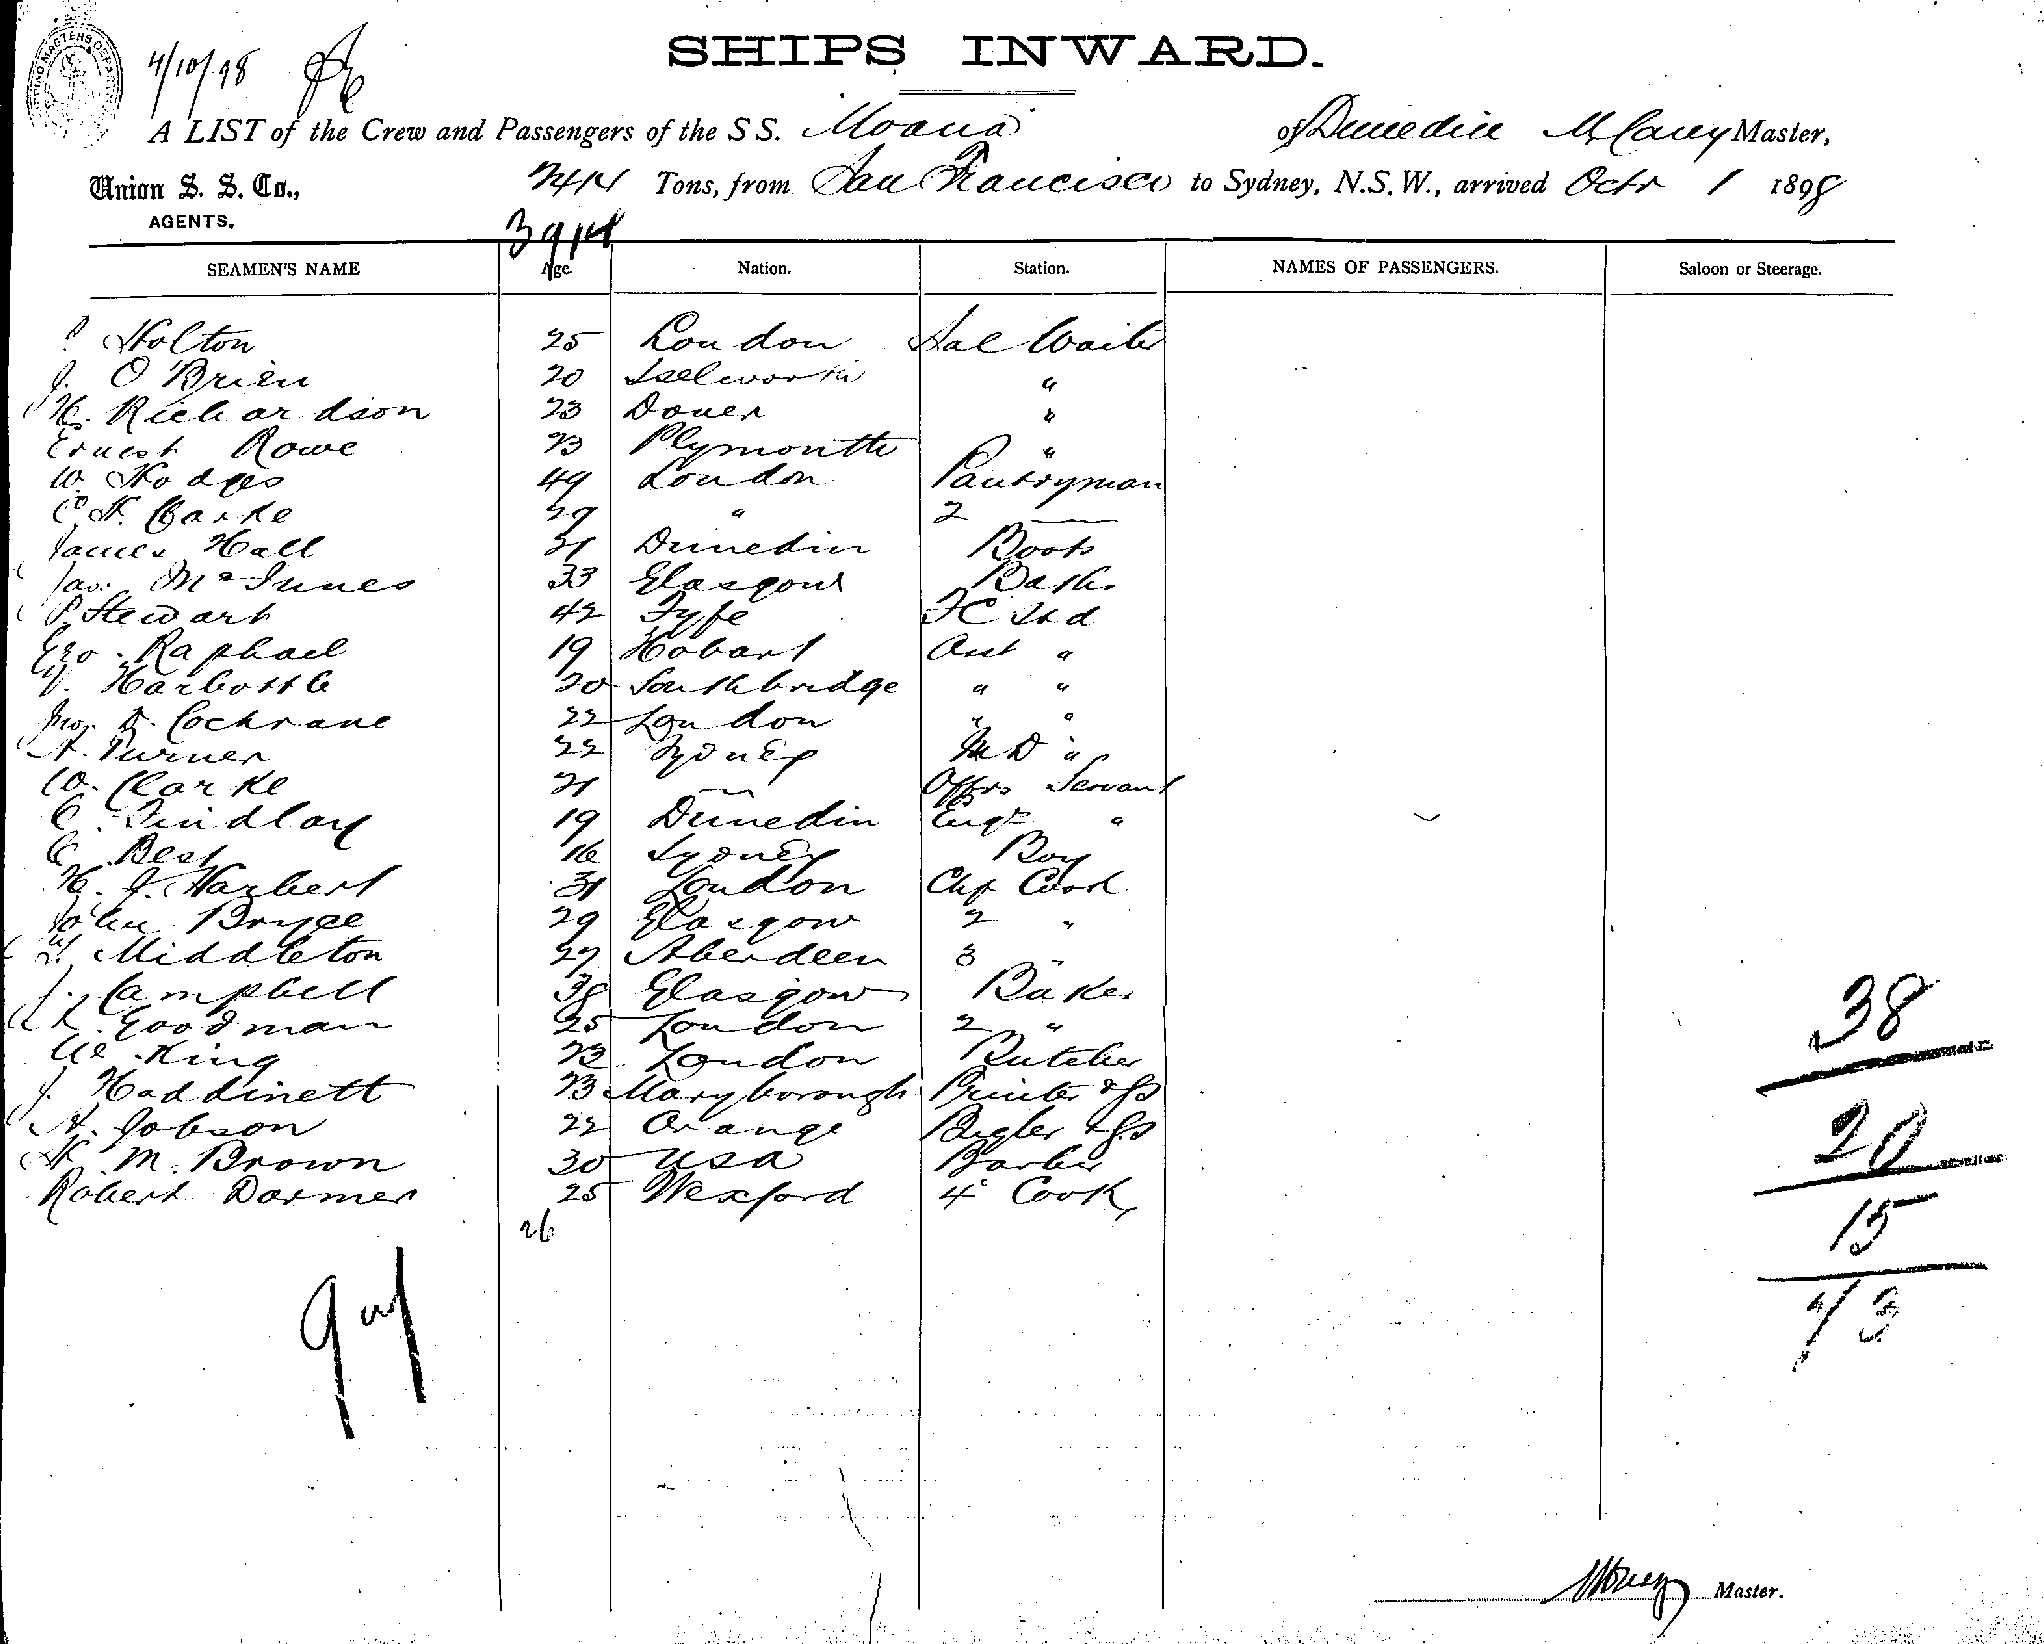 4/10/98
SHIPS INWARD.
A LIST of the Crew and Passengers of the SS. Moana of Dunedin M Carey Master,
Union S. S. Co., 2414 Tons, from San Francisco to Sydney, N.S.W., arrived Octr 1 1898
AGENTS.
3914
SEAMEN'S NAME Age. Nation. Station. NAMES OF PASSENGERS. Saloon or Steerage.
Holton 25 London Sal Waiter
J. O'Brien 20 Iselworth "
H. Richardson 23 Dover "
Ernest Rowe 23 Plymouth "
W. Hodges 49 London Pantryman
C. H. Clarke 29 " 2 —
James Hall 21 Dunedin Boots
Jas. McInnes 33 Glasgow Bath
P. Stewart 42 Fyfe FC Std
Geo. Raphael 19 Hobart Asst "
V. Harbottle 20 Southbridge " "
Jno. D. Cochrane 22 London " "
A. Turner 22 Sydney M D "
W. Clarke 21 — Offrs Servant
C. Findlay 19 Dunedin Engr "
C. Best 16 Sydney Boy
H. J. Harbert 31 London Chf Cook
John Bryce 29 Glasgow 2 "
Middleton 27 Aberdeen 3 "
J. Campbell 38 Glasgow Baker
Goodman 25 London 2 "
W. King 23 London Butcher
J. Haddinett 23 Maryborough Printer & Gs
A. Jobson 22 Orange Bugler & Gs
H. M. Brown 30 USA Barber
Robert Dormer 25 Wexford 4 Cook
26
38
20
15
73
Master.